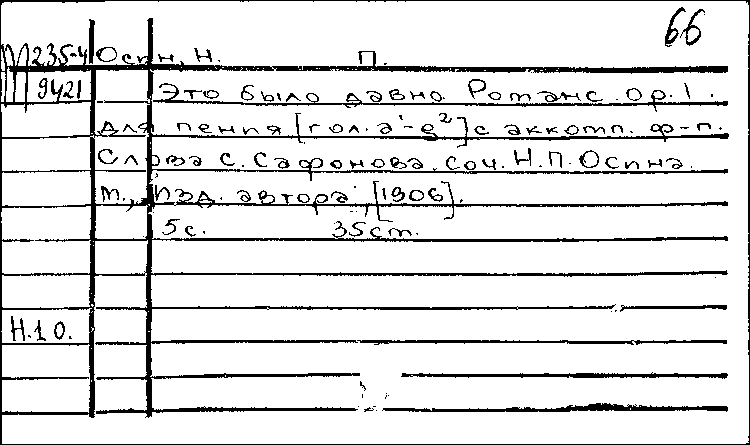 66
М235-4 Осин, Н. П.
9421 Это было давно. Романс. op. 1.
для пения [гол. a'-g²] с аккомп. ф-п.
Слова С. Сафонова. соч. Н.П. Осина.
М., Изд. автора, [1906].
5с. 35см.
Н.10.